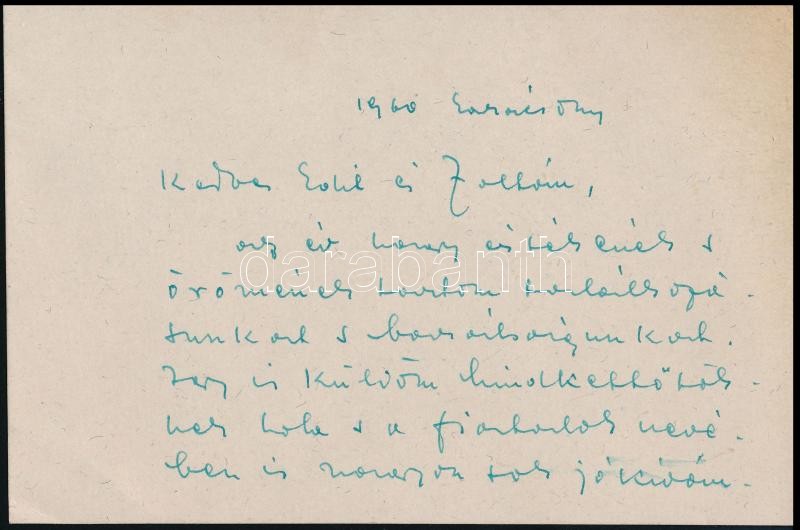 1960 Karácsony
Kedves Edit és Zoltán,
az év nagy értékének s
örömének tartom találkozá-
sunkat s barátságunkat.
Így is küldöm mindkettőtök-
nek s a fiatalok nevé-
ben is nagyon sok jókíván-
darabanth